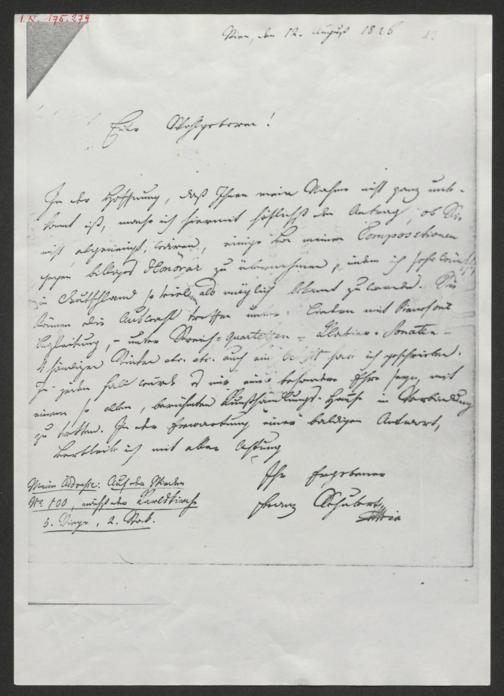 I.N. 175.279
Wien, den 12. August 1826
Euer Wohlgeboren!
In der Hoffnung, daß Ihnen mein Nahme nicht ganz unbe-
kannt ist, mache ich hiermit höflichst den Antrag, ob Sie
nicht abgeneigt wären, einige von meinen Compositionen
gegen billiges Honorar zu übernehmen, indem ich sehr wünsche,
in Deutschland so viel als möglich bekannt zu werden. Sie
können die Auswahl treffen unter: Liedern mit Pianoforte
begleitung, – unter Streich-Quartetten – Klavier-Sonaten –
4 händigen Stücken etc. etc. auch ein habe ich geschrieben.
In jedem Fall würde es mir eine besondere Ehre seyn, mit
einem so alten, berühmten Kunsthandlungs-Hause in Verbindung
zu treten. In der Erwartung einer baldigen Antwort,
verbleib ich mit aller Achtung
Meine Addresse: Auf der Wieden
Nr. 100, nächst der Karlskirche
5. Stiege, 2. Stock.
Ihr Ergebener
Franz Schubert